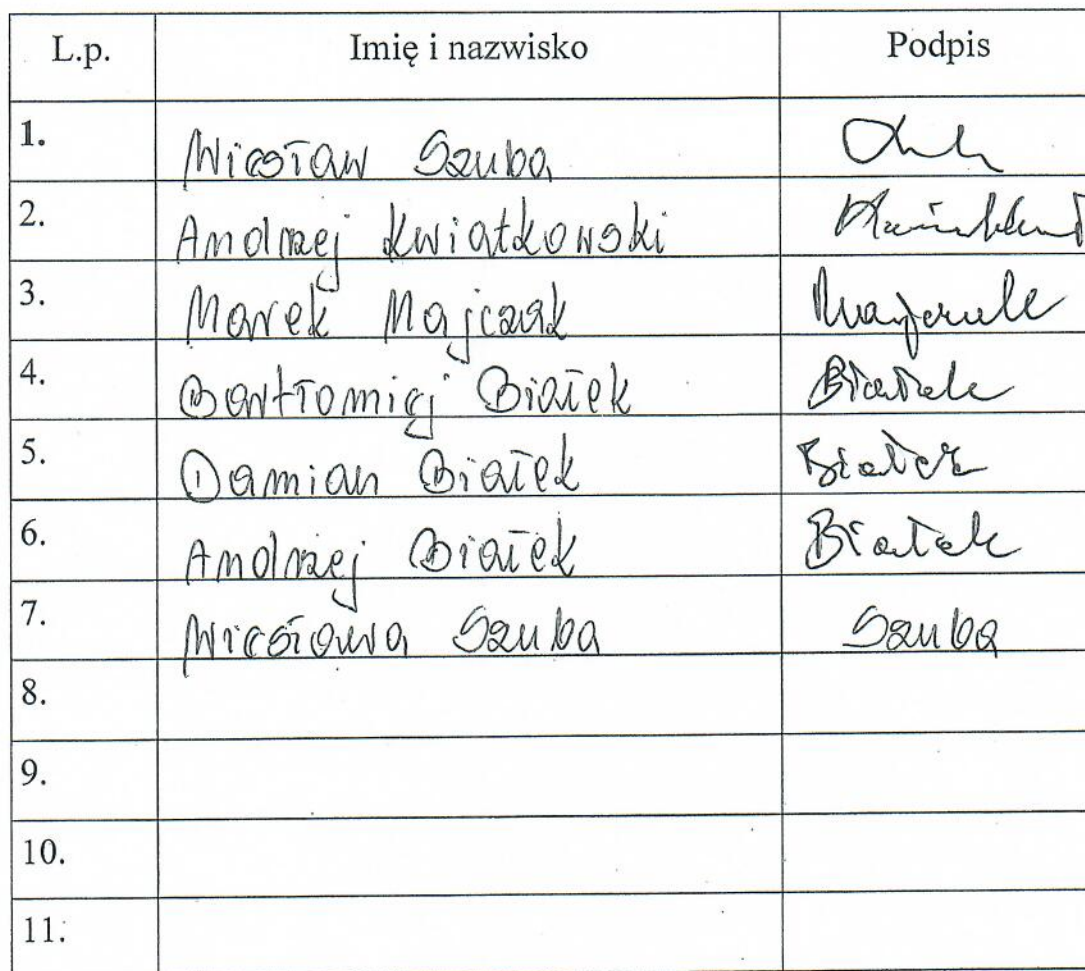 L.p. Imię i nazwisko Podpis
1. Wiesław Szuba
2. Andrzej Kwiatkowski
3. Marek Majczak
4. Bartłomiej Białek Białek
5. Damian Białek Białek
6. Andrzej Białek Białek
7. Wiesława Szuba Szuba
8.
9.
10.
11.